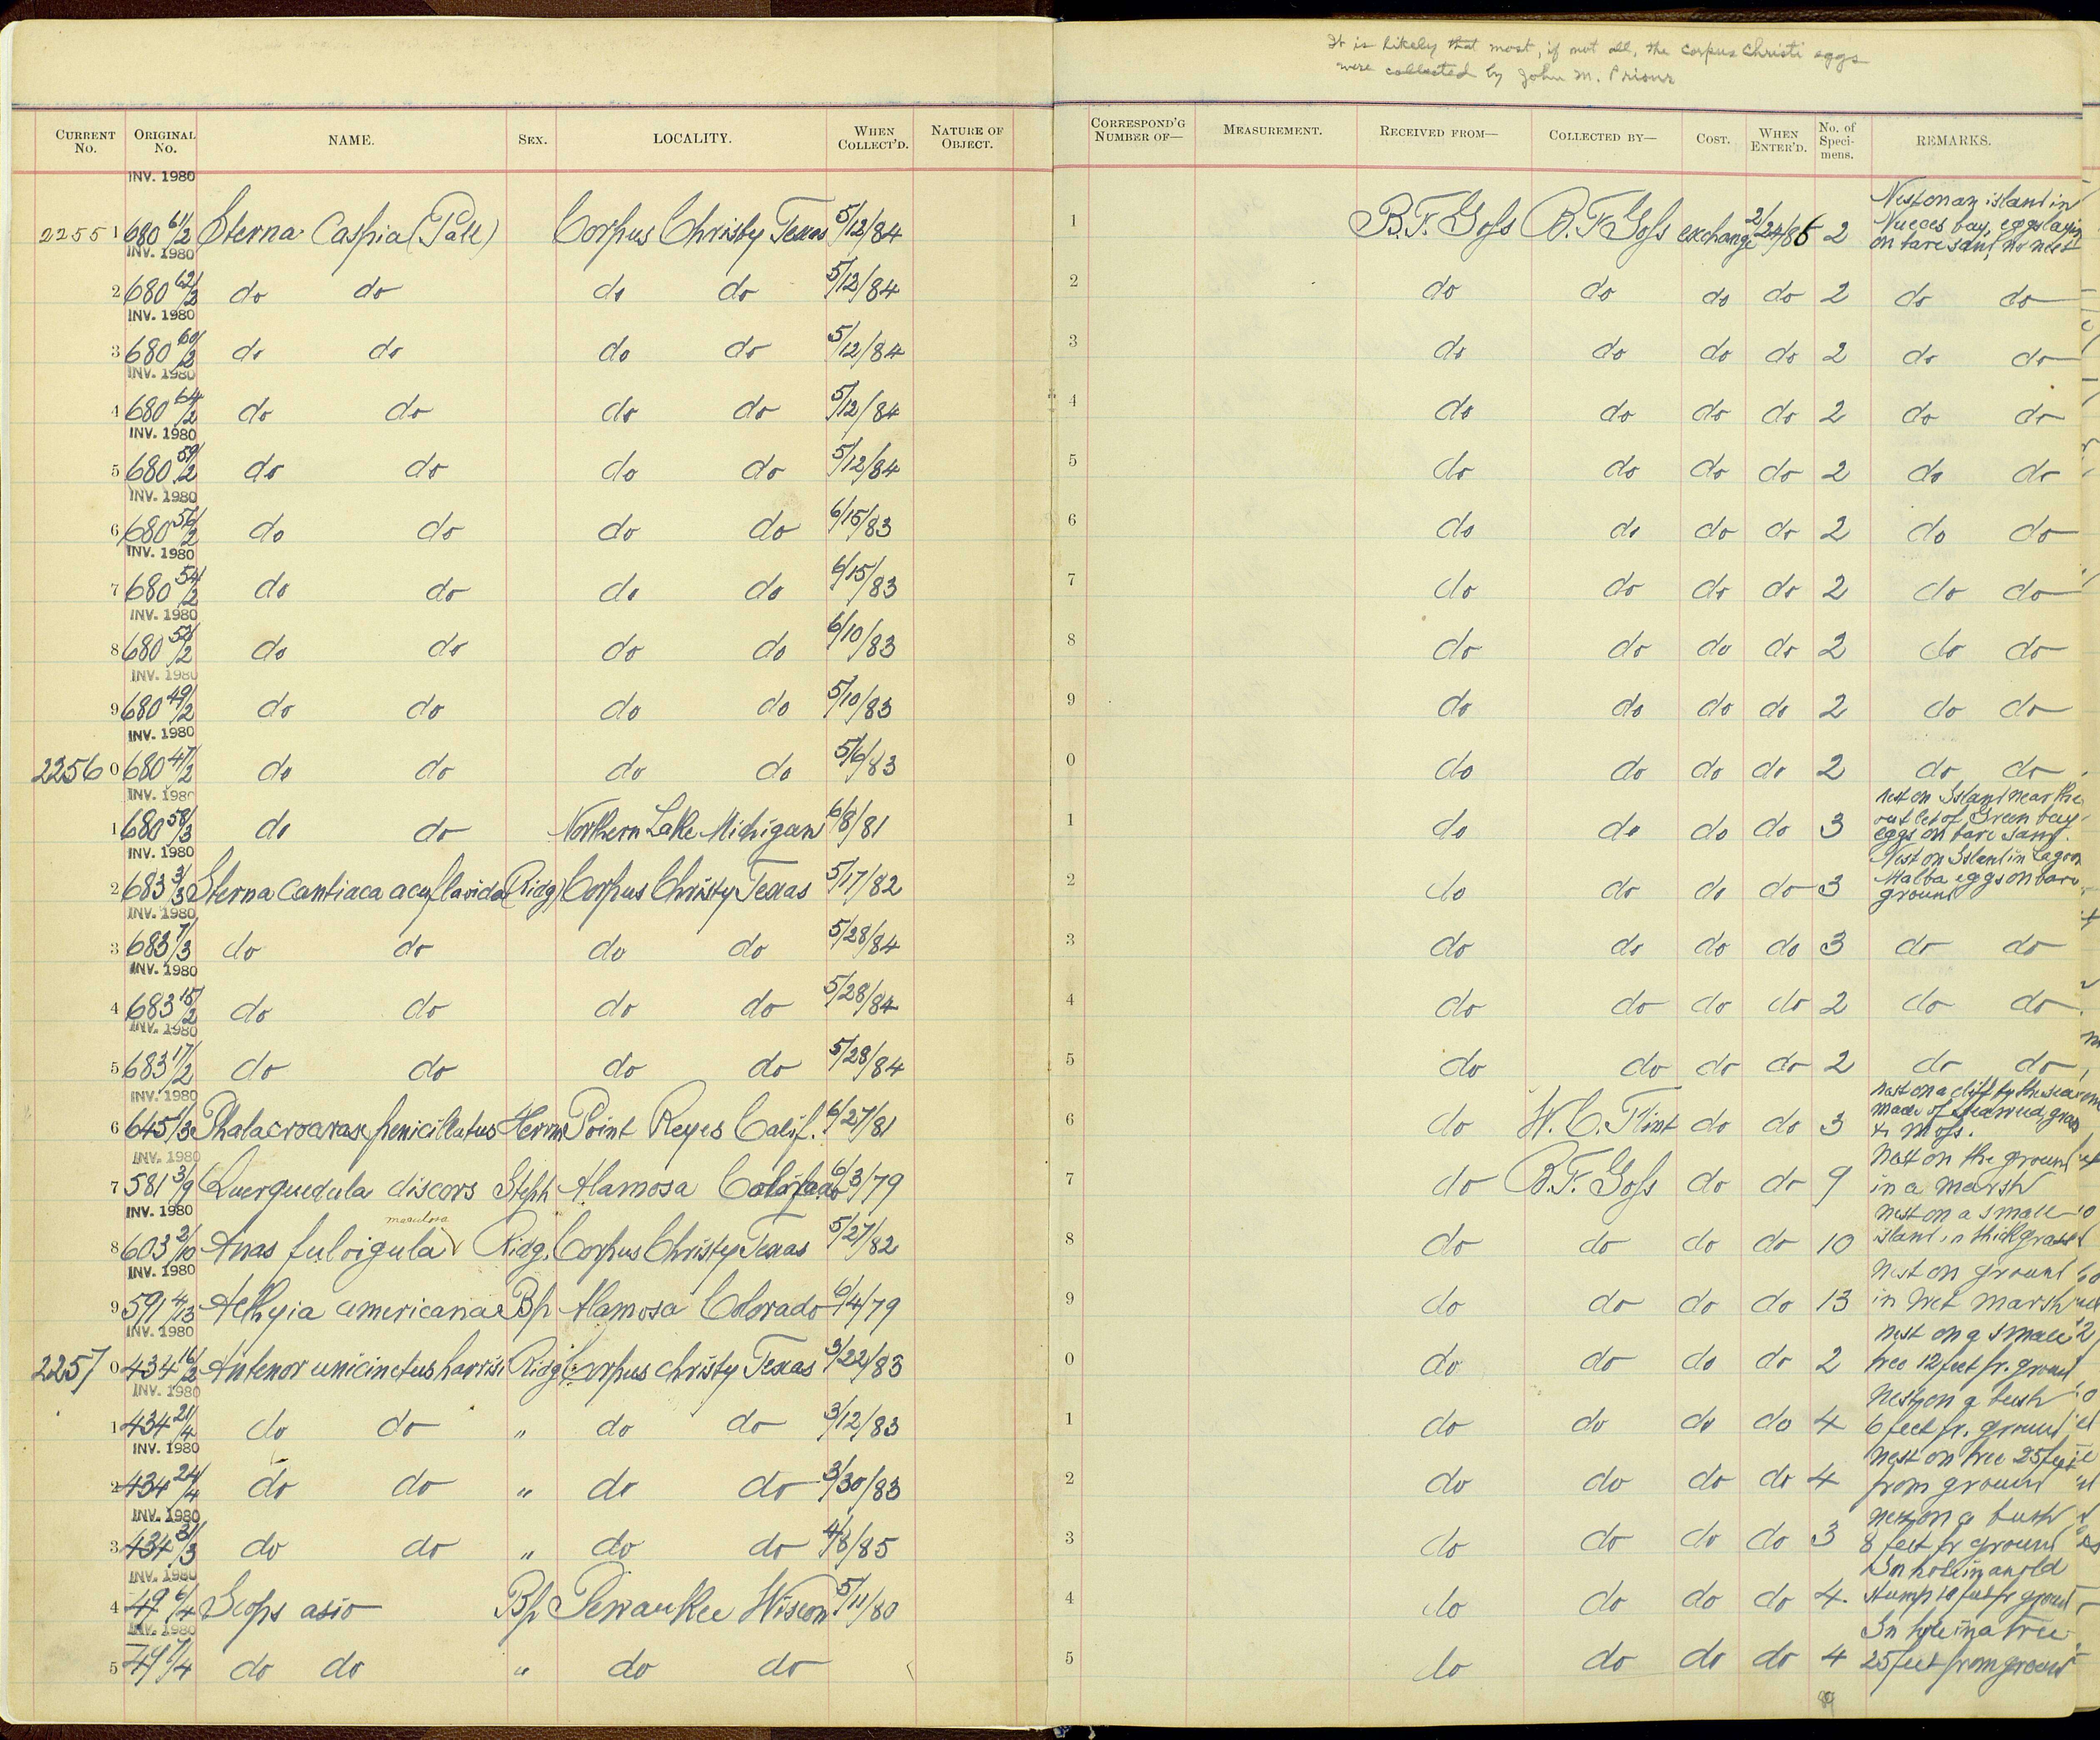 It is likely that most, if not all, the Corpus Christi eggs
were collected by John M. Priour
CURRENT No. ORIGINAL No. NAME. SEX. LOCALITY. WHEN COLLECT'D. NATURE OF OBJECT. CORRESPOND'G NUMBER OF— MEASUREMENT. RECEIVED FROM— COLLECTED BY— COST. WHEN ENTER'D. No. of Specimens. REMARKS.
INV. 1980
22551 680 61/2 Sterna Caspia (Pall) Corpus Christy Texas 5/12/84 1 B.F. Goss B.F. Goss exchange 2/24/86 2 Nest on an island in Nueces bay, eggs laying on bare sand, no nest
INV. 1980
2 680 62/2 do do do do 5/12/84 2 do do do do 2 do do
INV. 1980
3 680 60/2 do do do do 5/12/84 3 do do do do 2 do do
INV. 1980
4 680 64/2 do do do do 5/12/84 4 do do do do 2 do do
INV. 1980
5 680 59/2 do do do do 5/12/84 5 do do do do 2 do do
INV. 1980
6 680 56/2 do do do do 6/15/83 6 do do do do 2 do do
INV. 1980
7 680 54/2 do do do do 6/15/83 7 do do do do 2 do do
INV. 1980
8 680 /2 do do do do 6/10/83 8 do do do do 2 do do
INV. 1980
9 680 49/2 do do do do 5/10/83 9 do do do do 2 do do
INV. 1980
22560 680 47/2 do do do do 5/6/83 0 do do do do 2 do do
INV. 1980
1 680 58/3 do do Northern Lake Michigan 6/8/81 1 do do do do 3 Nest on Island near the outlet of Green bay eggs on bare sand
INV. 1980
2 683 3/3 Sterna Cantiaca acuflavida Ridg) Corpus Christy Texas 5/17/82 2 do do do do 3 Nest on Island in Lagoon Malba eggs on bare ground
INV. 1980
3 683 7/3 do do do do 5/28/84 3 do do do do 3 do do
INV. 1980
4 683 15/2 do do do do 5/28/84 4 do do do do 2 do do
INV. 1980
5 683 17/2 do do do do 5/28/84 5 do do do do 2 do do
INV. 1980
6 645 1/3 penicillatus Herrm Point Reyes Calif. 6/27/81 6 do W.C. Flint do do 3 Nest on a cliff by the sea made of seaweed, grass & moss.
INV. 1980
7 581 3/9 Querquedula discors Steph Alamosa Colorado 6/3/79 7 do B.F. Goss do do 9 Nest on the ground in a marsh
INV. 1980
maculosa
8 603 2/10 Anas fulvigula Ridg. Corpus Christy Texas 5/27/82 8 do do do do 10 Nest on a small island in thick grass
INV. 1980
9 591 4/13 Aethyia americana Bp Alamosa Colorado 6/4/79 9 do do do do 13 Nest on ground in wet marsh
INV. 1980
22570 434 16/2 Antenor unicinctus harrisi Ridg Corpus christy Texas 3/22/83 0 do do do do 2 Nest on a small tree 12 feet fr. ground
INV. 1980
1 434 21/4 do do " do do 3/12/83 1 do do do do 4 Nest on a bush 6 feet fr. ground
INV. 1980
2 434 24/4 do do " do do 3/30/83 2 do do do do 4 Nest on tree 25 feet from ground
INV. 1980
3 434 31/3 do do " do do 4/8/85 3 do do do do 3 Nest on a bush 8 feet fr ground
INV. 1980
4 49 6/4 Scops asio Bp Pewaukee Wiscon 5/11/80 4 do do do do 4 In hole in an old stump 10 feet fr ground
INV. 1980
5 49 7/4 do do " do do 5 do do do do 4 In hole in a tree 25 feet from ground